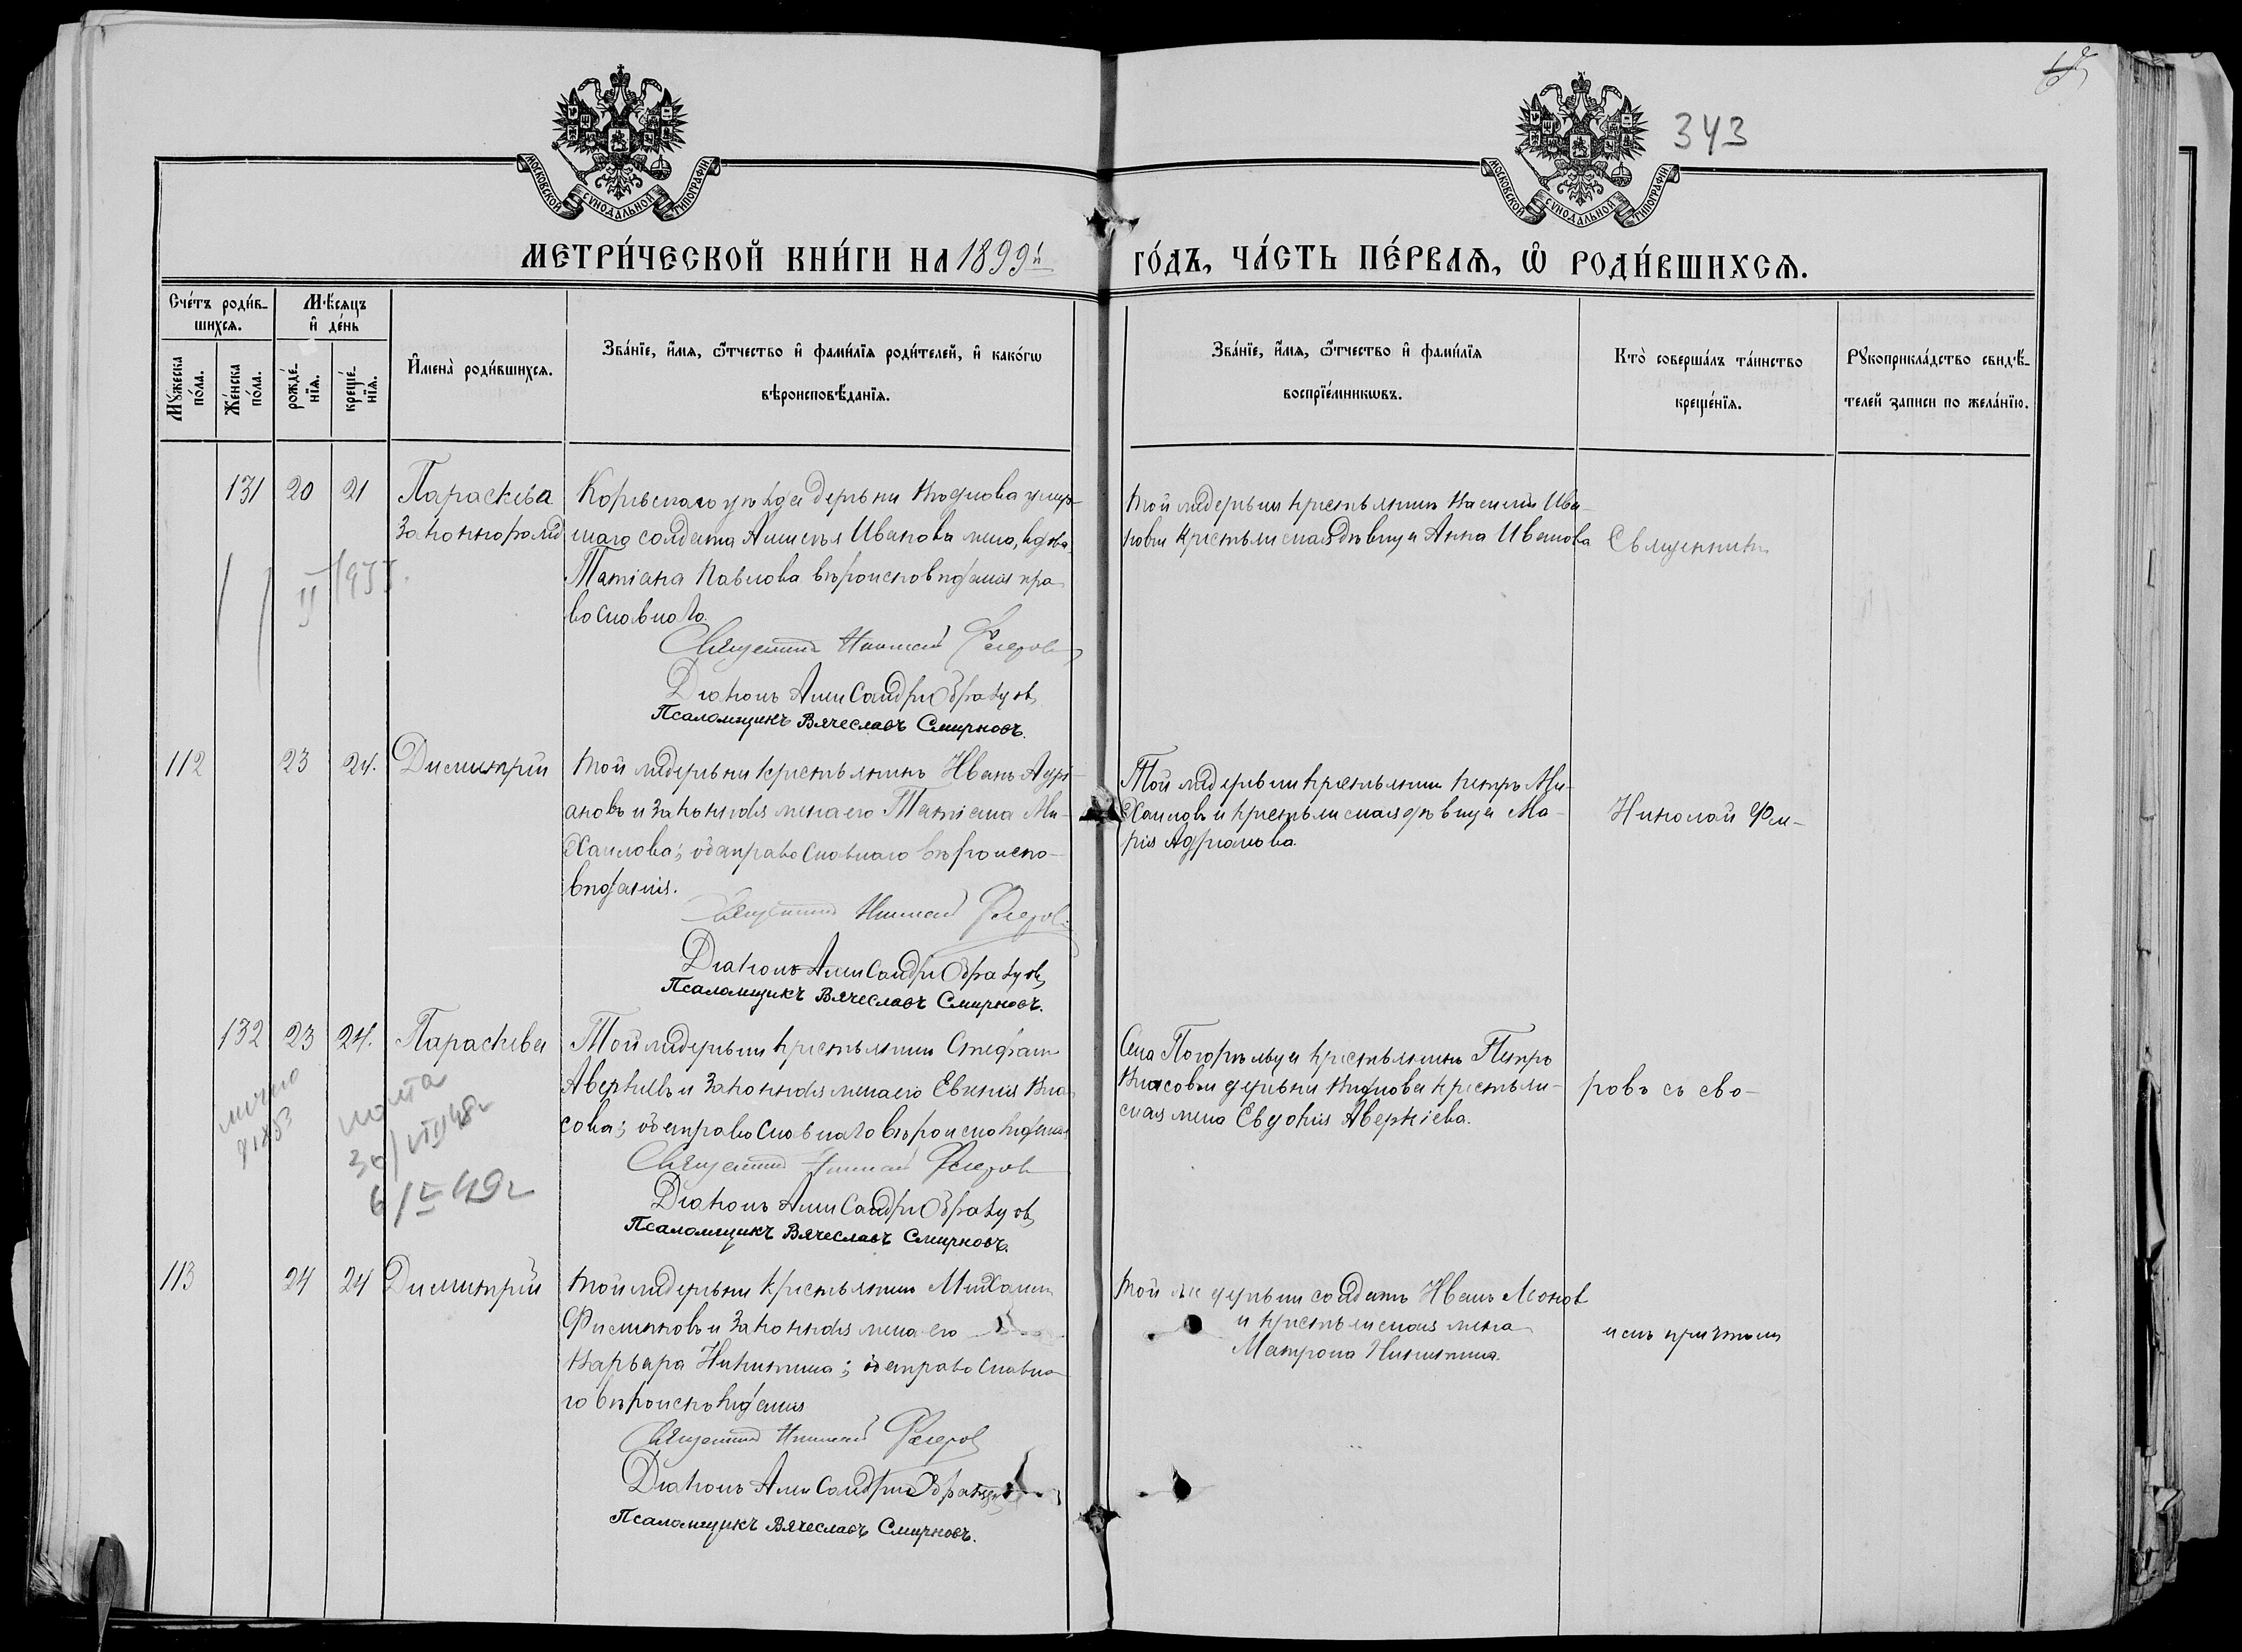 МОСКОВСКОЙ СѴНОДАЛЬНОЙ ТИПОГРАФІИ
МОСКОВСКОЙ СѴНОДАЛЬНОЙ ТИПОГРАФІИ
343
МЕТРИ́ЧЕСКОЙ КНИ́ГИ НА 1899й
ГО́ДЪ, ЧА́СТЬ ПЕ́РВАѦ, Ѡ РОДИ́ВШИХСѦ.
Сче́тъ роди́в-
шихсѧ.
Мꙋ́жеска
по́ла.
Же́нска
по́ла.
Мѣ́сѧцъ
и҆ де́нь
рожде́-
нїѧ.
креще́-
нїѧ.
И҆мена̀ роди́вшихсѧ.
Зва́нїе, и҆́мѧ, ѻ҆́тчество и҆ фами́лїѧ роди́телей, и҆ како́гѡ
вѣроисповѣ́данїѧ.
Зва́нїе, и҆́мѧ, ѻ҆́тчество и҆ фами́лїѧ
воспрїе́мникѡвъ.
Кто̀ соверша́лъ та́инство
креще́нїѧ.
Рꙋкоприкла́дство свидѣ́-
телей записи по жела́нїю.
131 20 21 Параскева
Законнорожд
уѣзда деревни умер-
шаго солдата Алексѣя Иванова жена, вдова
Татіана Павлова вѣроисповѣданія пра
вославнаго.
Священникъ Николай
Діаконъ Александръ Образцовъ
Псаломщикъ Вячеславъ Смирновъ.
Той же деревни крестьянинъ Василій Ива-
новъ и крестьянская дѣвица Анна Иванова
Священникъ
II 1955.
112 23 24. Димитрій
Той же деревни крестьянинъ Иванъ Адрі-
ановъ и законная жена его Татіана Ми-
хаилова; оба православнаго вѣроиспо-
вѣданія.
Священникъ Николай
Діаконъ Александръ Образцовъ
Псаломщикъ Вячеславъ Смирновъ.
Той же деревни крестьянинъ Петръ Ми-
хаиловъ и крестьянская дѣвица Ма-
рія Адріанова.
Николай
132 23 24. Параскева
Той же деревни крестьянинъ Стефанъ
Аверкіевъ и законная жена его Евгенія Вла
сова; оба православнаго вѣроисповѣданія
Священникъ Николай
Діаконъ Александръ Образцовъ
Псаломщикъ Вячеславъ Смирновъ.
Села крестьянинъ Петръ
Власовъ и деревни крестьян-
ская жена Евдокія Аверкіева.
ровъ съ сво-
30/VIII 48г
6/IX 49г
113 24 24 Димитрій
Той же деревни крестьянинъ Михаилъ
Филипповъ и законная жена его
Варвара Никитина; оба православна
го вѣроисповѣданія
Священникъ Николай
Діаконъ Александръ Образцовъ
Псаломщикъ Вячеславъ Смирновъ.
Той же деревни солдатъ Иванъ Леонов
и крестьянская жена
Матрона Никитина.
имъ причтомъ